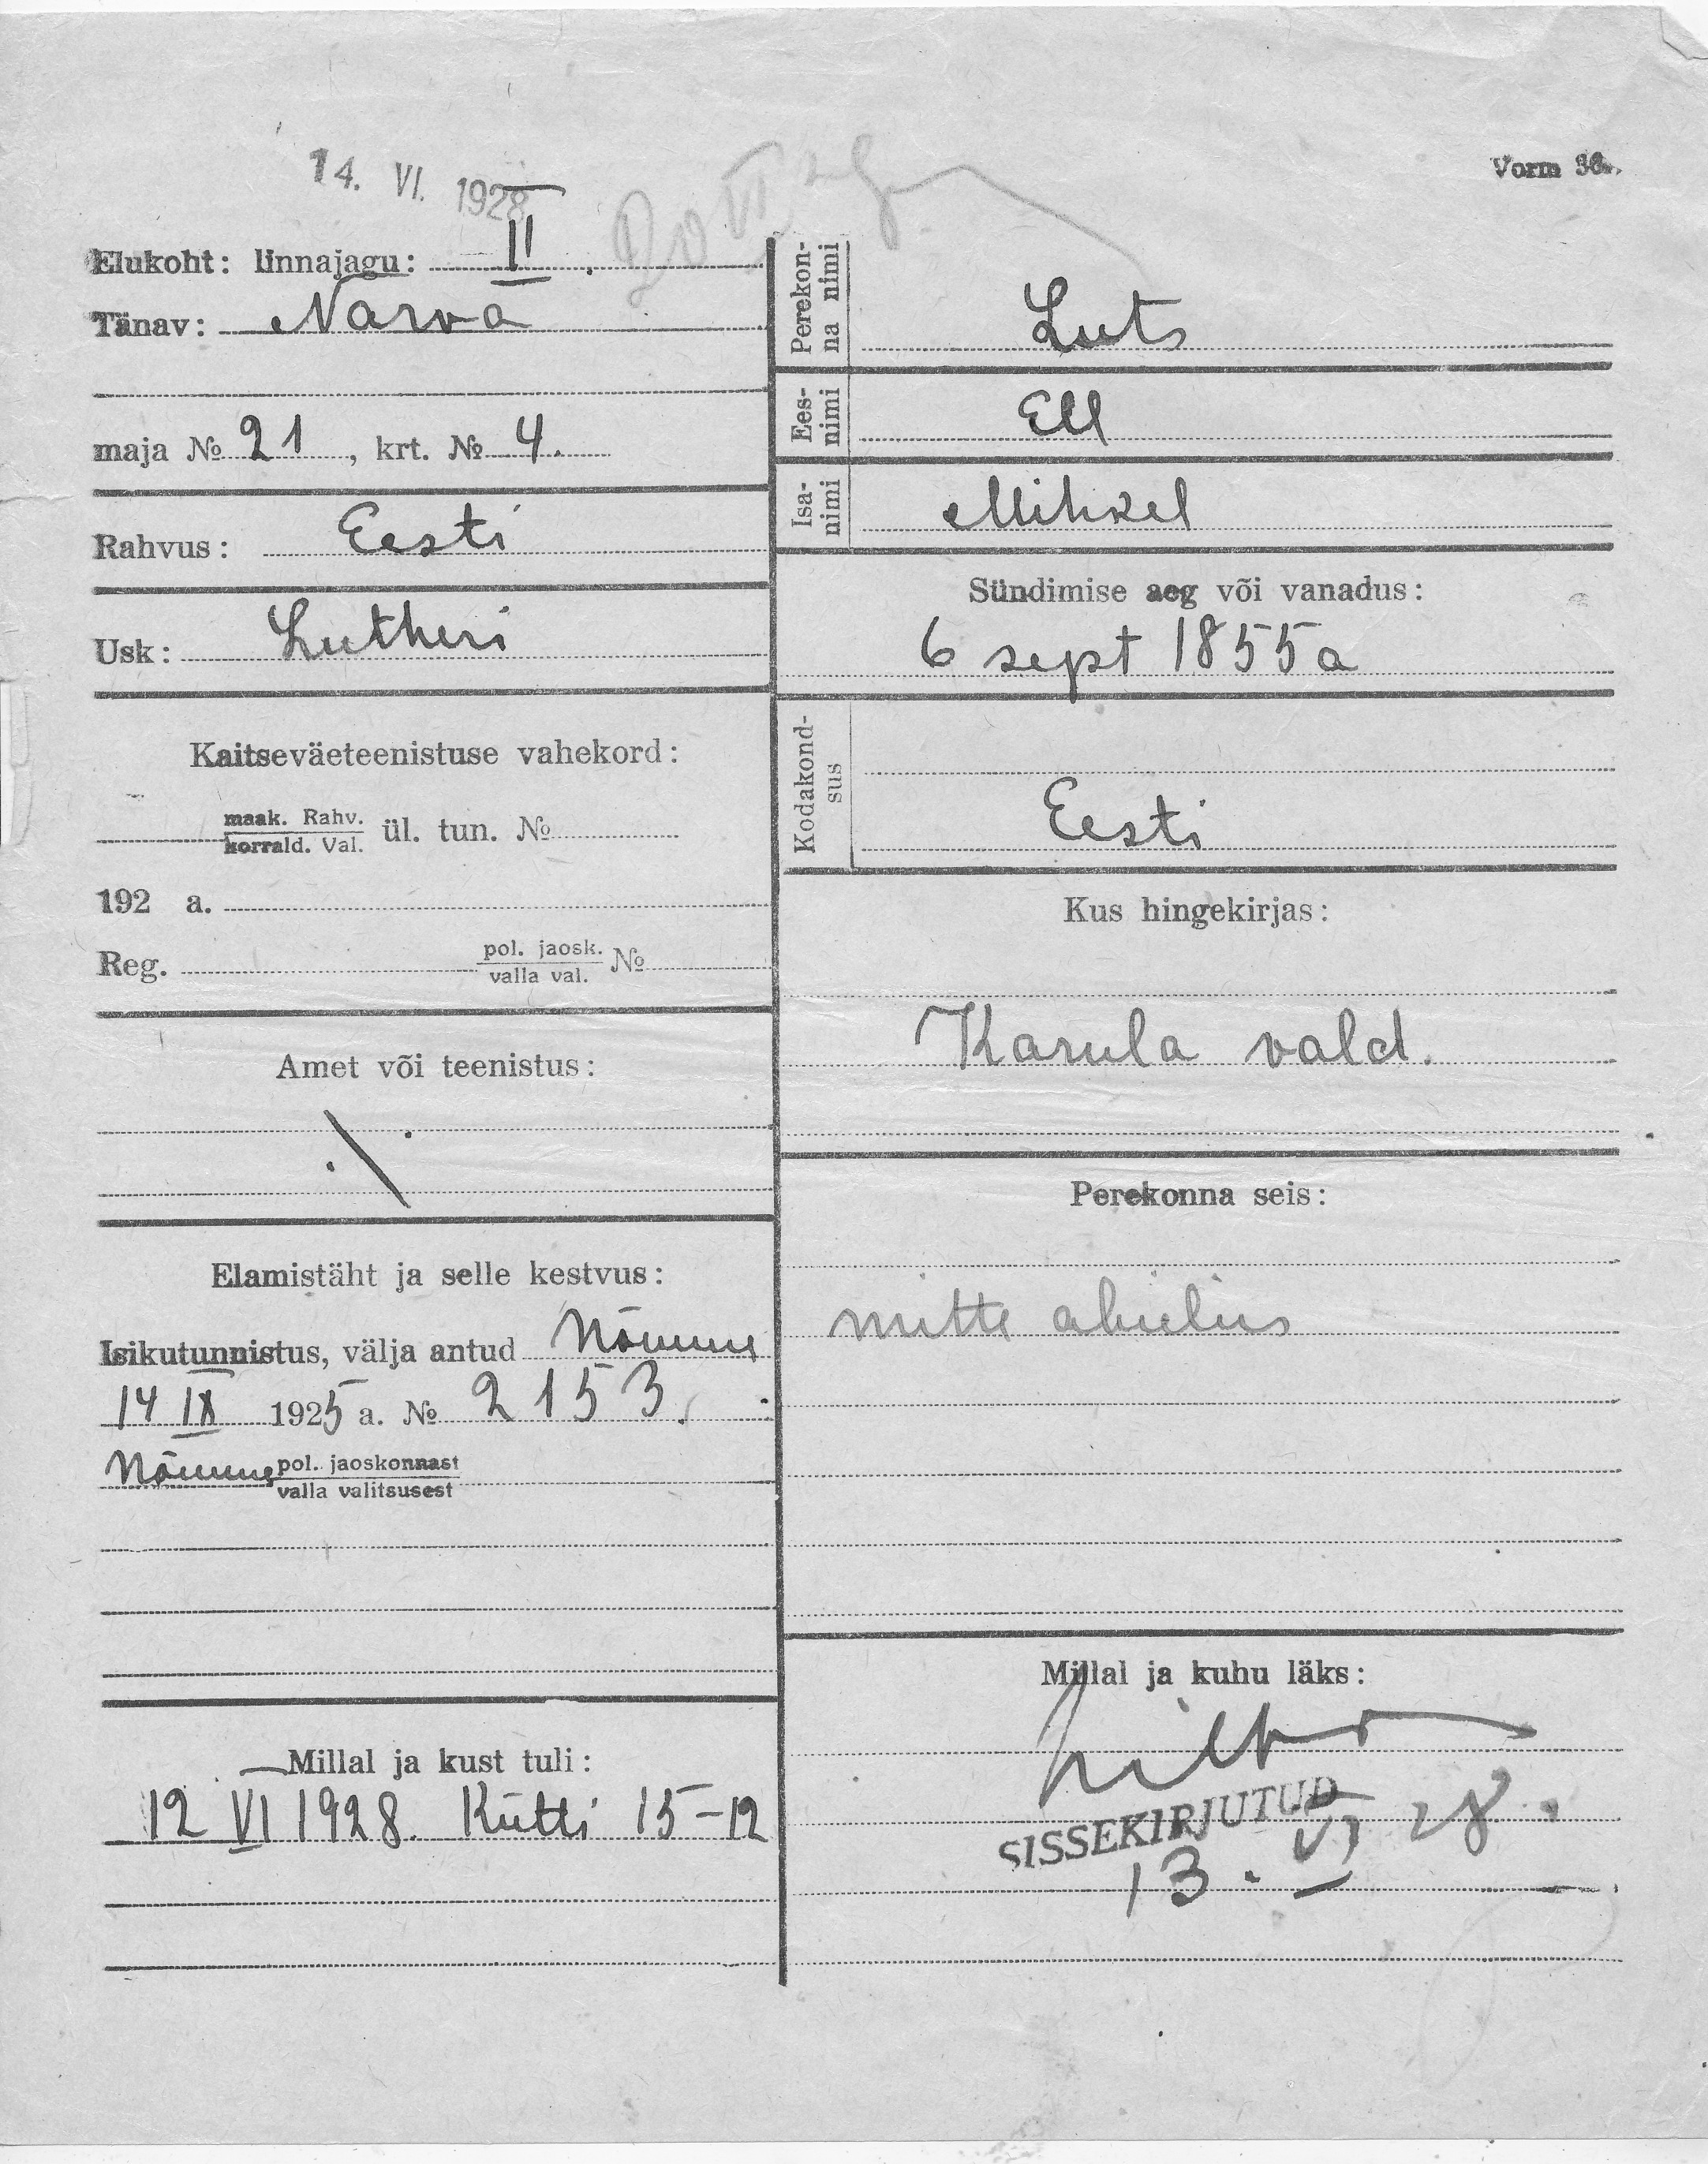 14. VI. 1928
Vorm 36.
Elukoht: linnajagu: II.
Tänav: Narva
maja № 21, krt. № 4.
Rahvus: Eesti
Usk: Lutheri
Kaitseväeteenistuse vahekord:
maak. Rahv.
korrald. Val.
ül. tun. №
192 a.
Reg.
pol. jaosk.
valla val.
№
Amet või teenistus:
Elamistäht ja selle kestvus:
Isikutunnistus, välja antud Nõmme
14 IX 1925 a. № 2153.
Nõmme pol. jaoskonnast
valla valitsusest
Millal ja kust tuli:
12 VI 1928. Kütti 15-12
Perekon-
na nimi
Luts
Ees-
nimi
Ell
Isa-
nimi
Mihkel
Sündimise aeg või vanadus:
6 sept 1855 a
Kodakond-
sus
Eesti
Kus hingekirjas:
Karula vald.
Perekonna seis:
mitte abielus
Millal ja kuhu läks:
SISSEKIRJUTUD
13. VI 28.